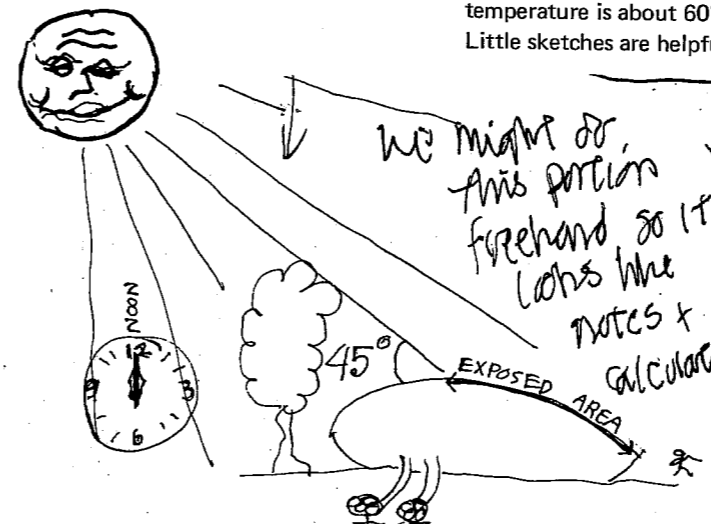 temperature is about 60
Little sketches are helpf
we might do
this portion
freehand so it
looks like
notes +
calculat
NOON
12
9
3
6
45°
EXPOSED AREA